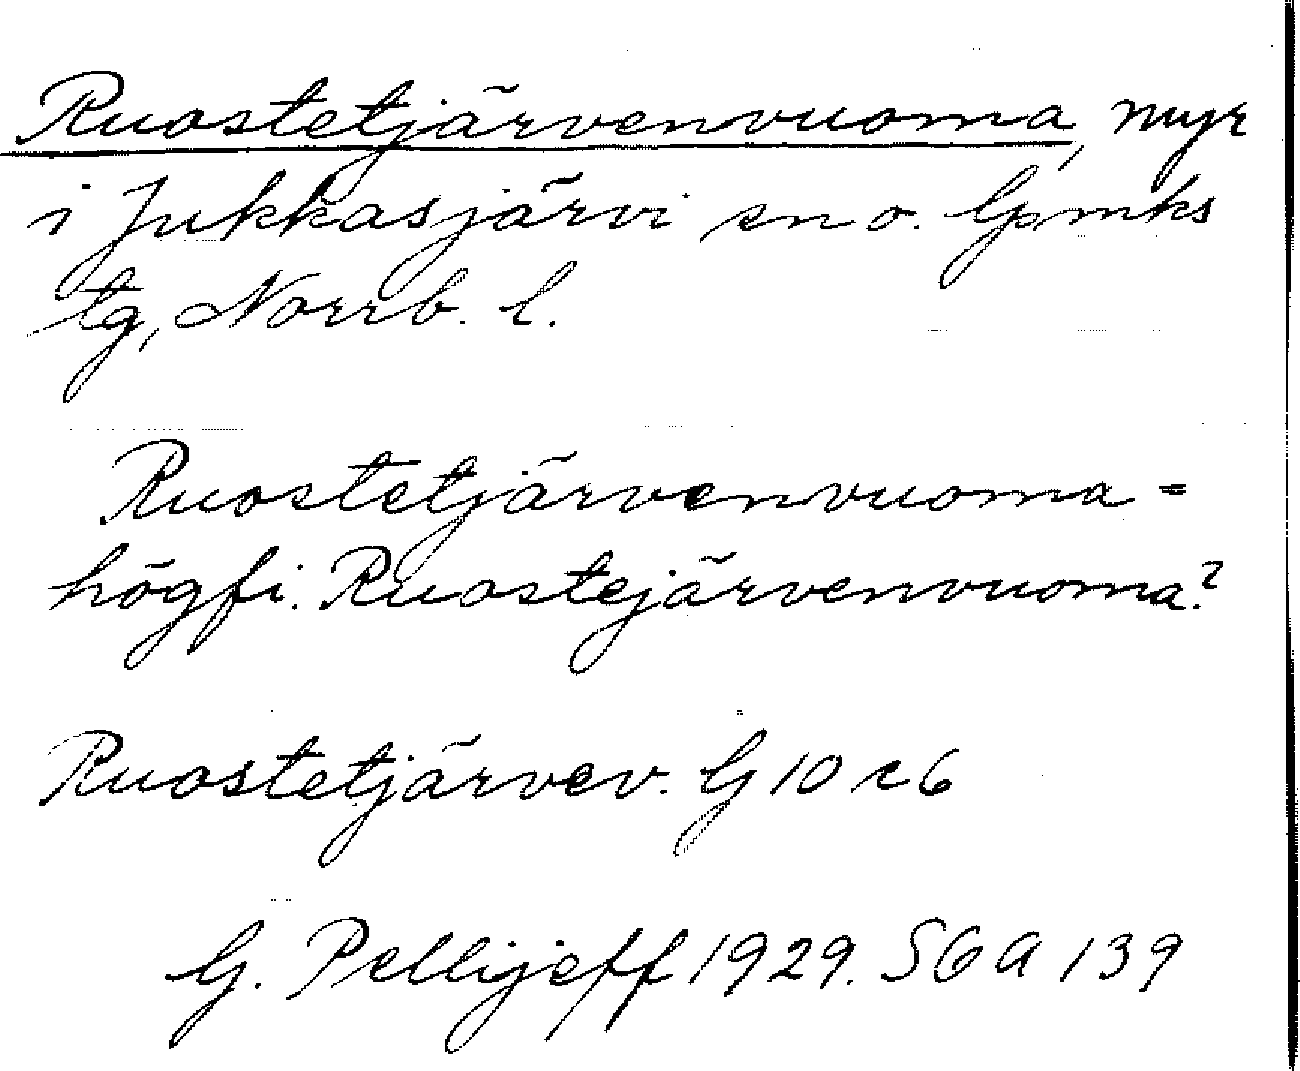 Ruostetjärvenvuoma, myr
i Jukkasjärvi sn o. Gpmks
tg, Norrb. l.
Ruostetjärvenvuoma =
högfi. Ruostejärvenvuoma?
Ruostetjärvev. G 10 c6
G. Pellijeff 1929. SGA 139